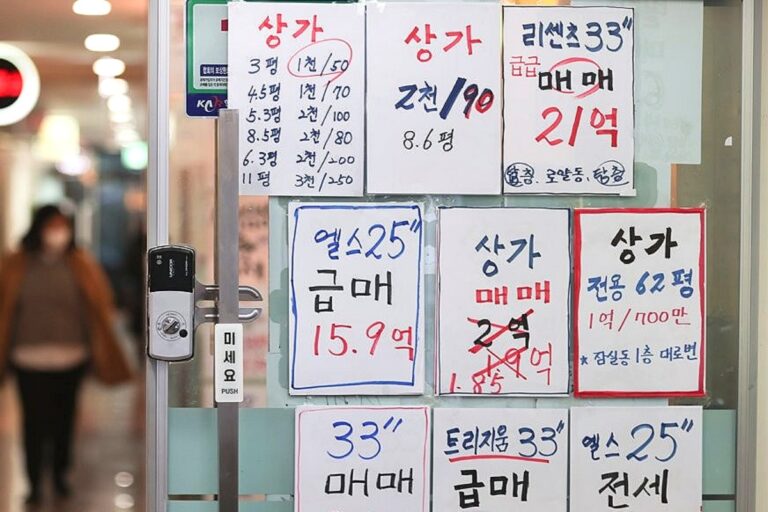 상가
3평 1천/50
4.5평 1천/70
5.3평 2천/100
8.5평 2천/80
6.3평 2천/200
11평 3천/250
상가
2천/90
8.6평
리센츠 33"
급급
매매
21억
로얄동, 탑층
엘스 25"
급매
15.9억
상가
매매
2억
1.9억
1.85
상가
전용 62평
1억/700만
*잠실동 1층 대로변
미세요
PUSH
33"
매매
트리지움 33"
급매
엘스 25"
전세